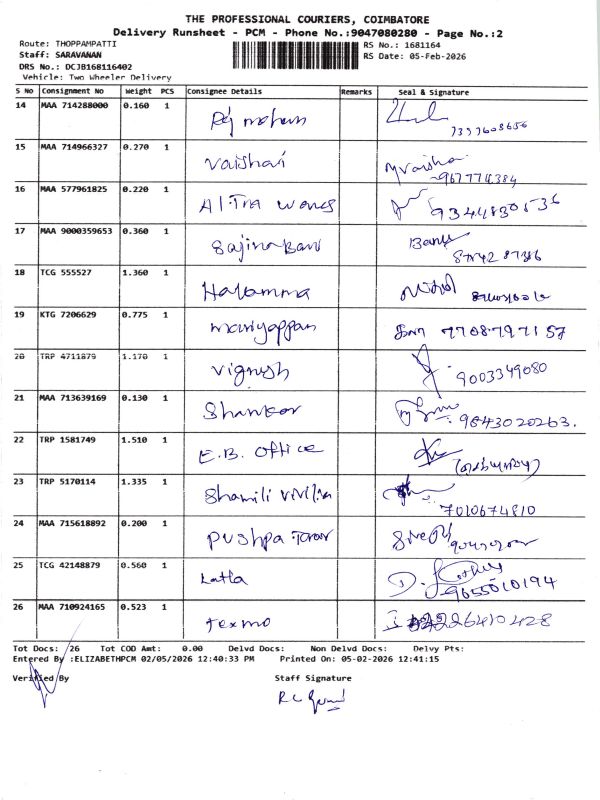 THE PROFESSIONAL COURIERS, COIMBATORE
Delivery Runsheet - PCM - Phone No.:9047080280 - Page No.:2
Route: THOPPAMPATTI
RS No.: 1681164
Staff: SARAVANAN
RS Date: 05-Feb-2026
DRS No.: DCJB168116402
Vehicle: Two Wheeler Delivery
S No Consignment No Weight PCS Consignee Details Remarks Seal & Signature
14 MAA 714288000 0.160 1 Raj mohan
7393608656
15 MAA 714966327 0.270 1 Vaishavi
16 MAA 577961825 0.220 1 9344830536
17 MAA 9000359653 0.360 1 Sajina Banu Banu
18 TCG 555527 1.360 1
19 KTG 7206629 0.775 1 mariyappan 7708797157
20 TRP 4711879 1.170 1 Vignesh 9003349080
21 MAA 713639169 0.130 1 Shankar 9843020263.
22 TRP 1581749 1.510 1 E.B. Office
23 TRP 5170114 1.335 1 Shamili 7010674810
24 MAA 715618892 0.200 1 Pushpa
25 TCG 42148879 0.560 1 Latla 9655010194
26 MAA 710924165 0.523 1 Texmo
Tot Docs: 26 Tot COD Amt: 0.00 Delvd Docs: Non Delvd Docs: Delvy Pts:
Entered By :ELIZABETHPCM 02/05/2026 12:40:33 PM Printed On: 05-02-2026 12:41:15
Verified By Staff Signature